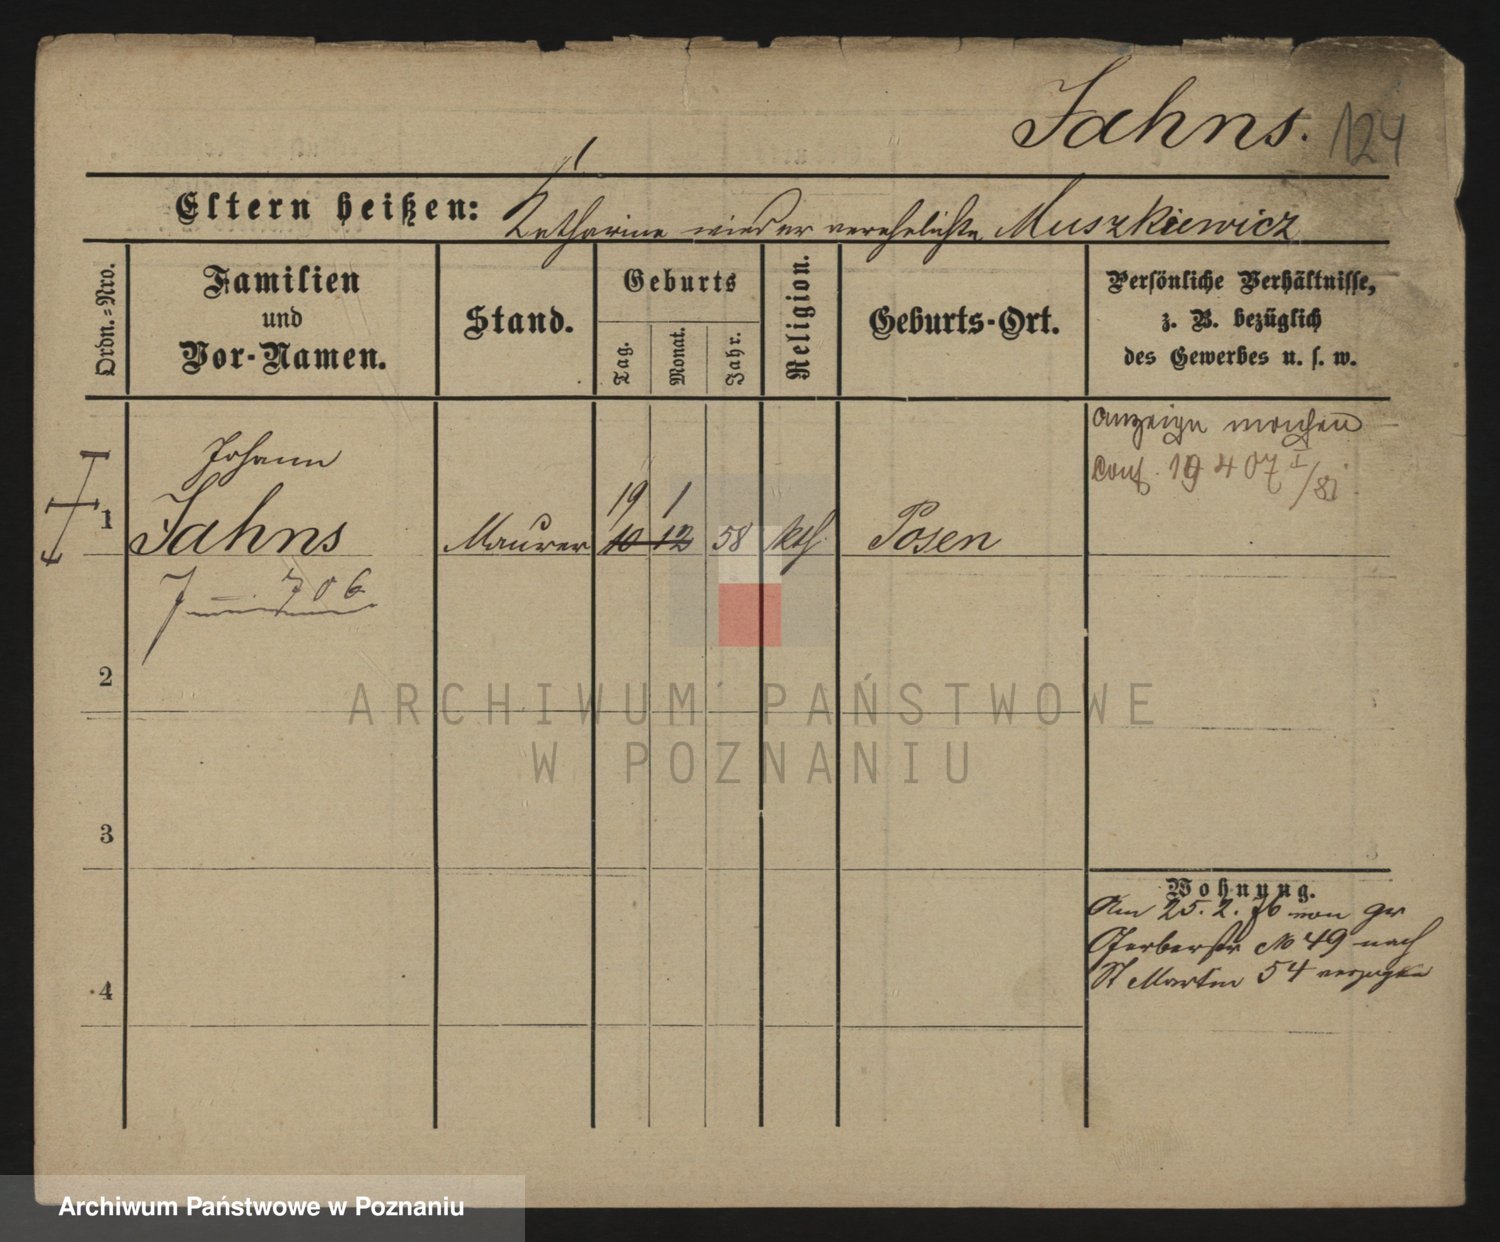 Jahns.
124
Eltern heißen: Katharine wieder verehelichte Muszkiewicz
Ordn.-Nro.
Familien
und
Vor-Namen.
Stand.
Geburts
Tag.
Monat.
Jahr.
Religion.
Geburts-Ort.
Persönliche Verhältnisse,
z. B. bezüglich
des Gewerbes u. s. w.
Anzeige machen
Conf. 19 407 I/81
Johann
19 1
1 Jahns Maurer 10 12 58 kth. Posen
J 706
2
3
4
Wohnung.
Am 25. 2. 76 von gr
Gerberstr No 49 nach
St Martin 54 verzogen
ARCHIWUM PAŃSTWOWE
W POZNANIU
Archiwum Państwowe w Poznaniu